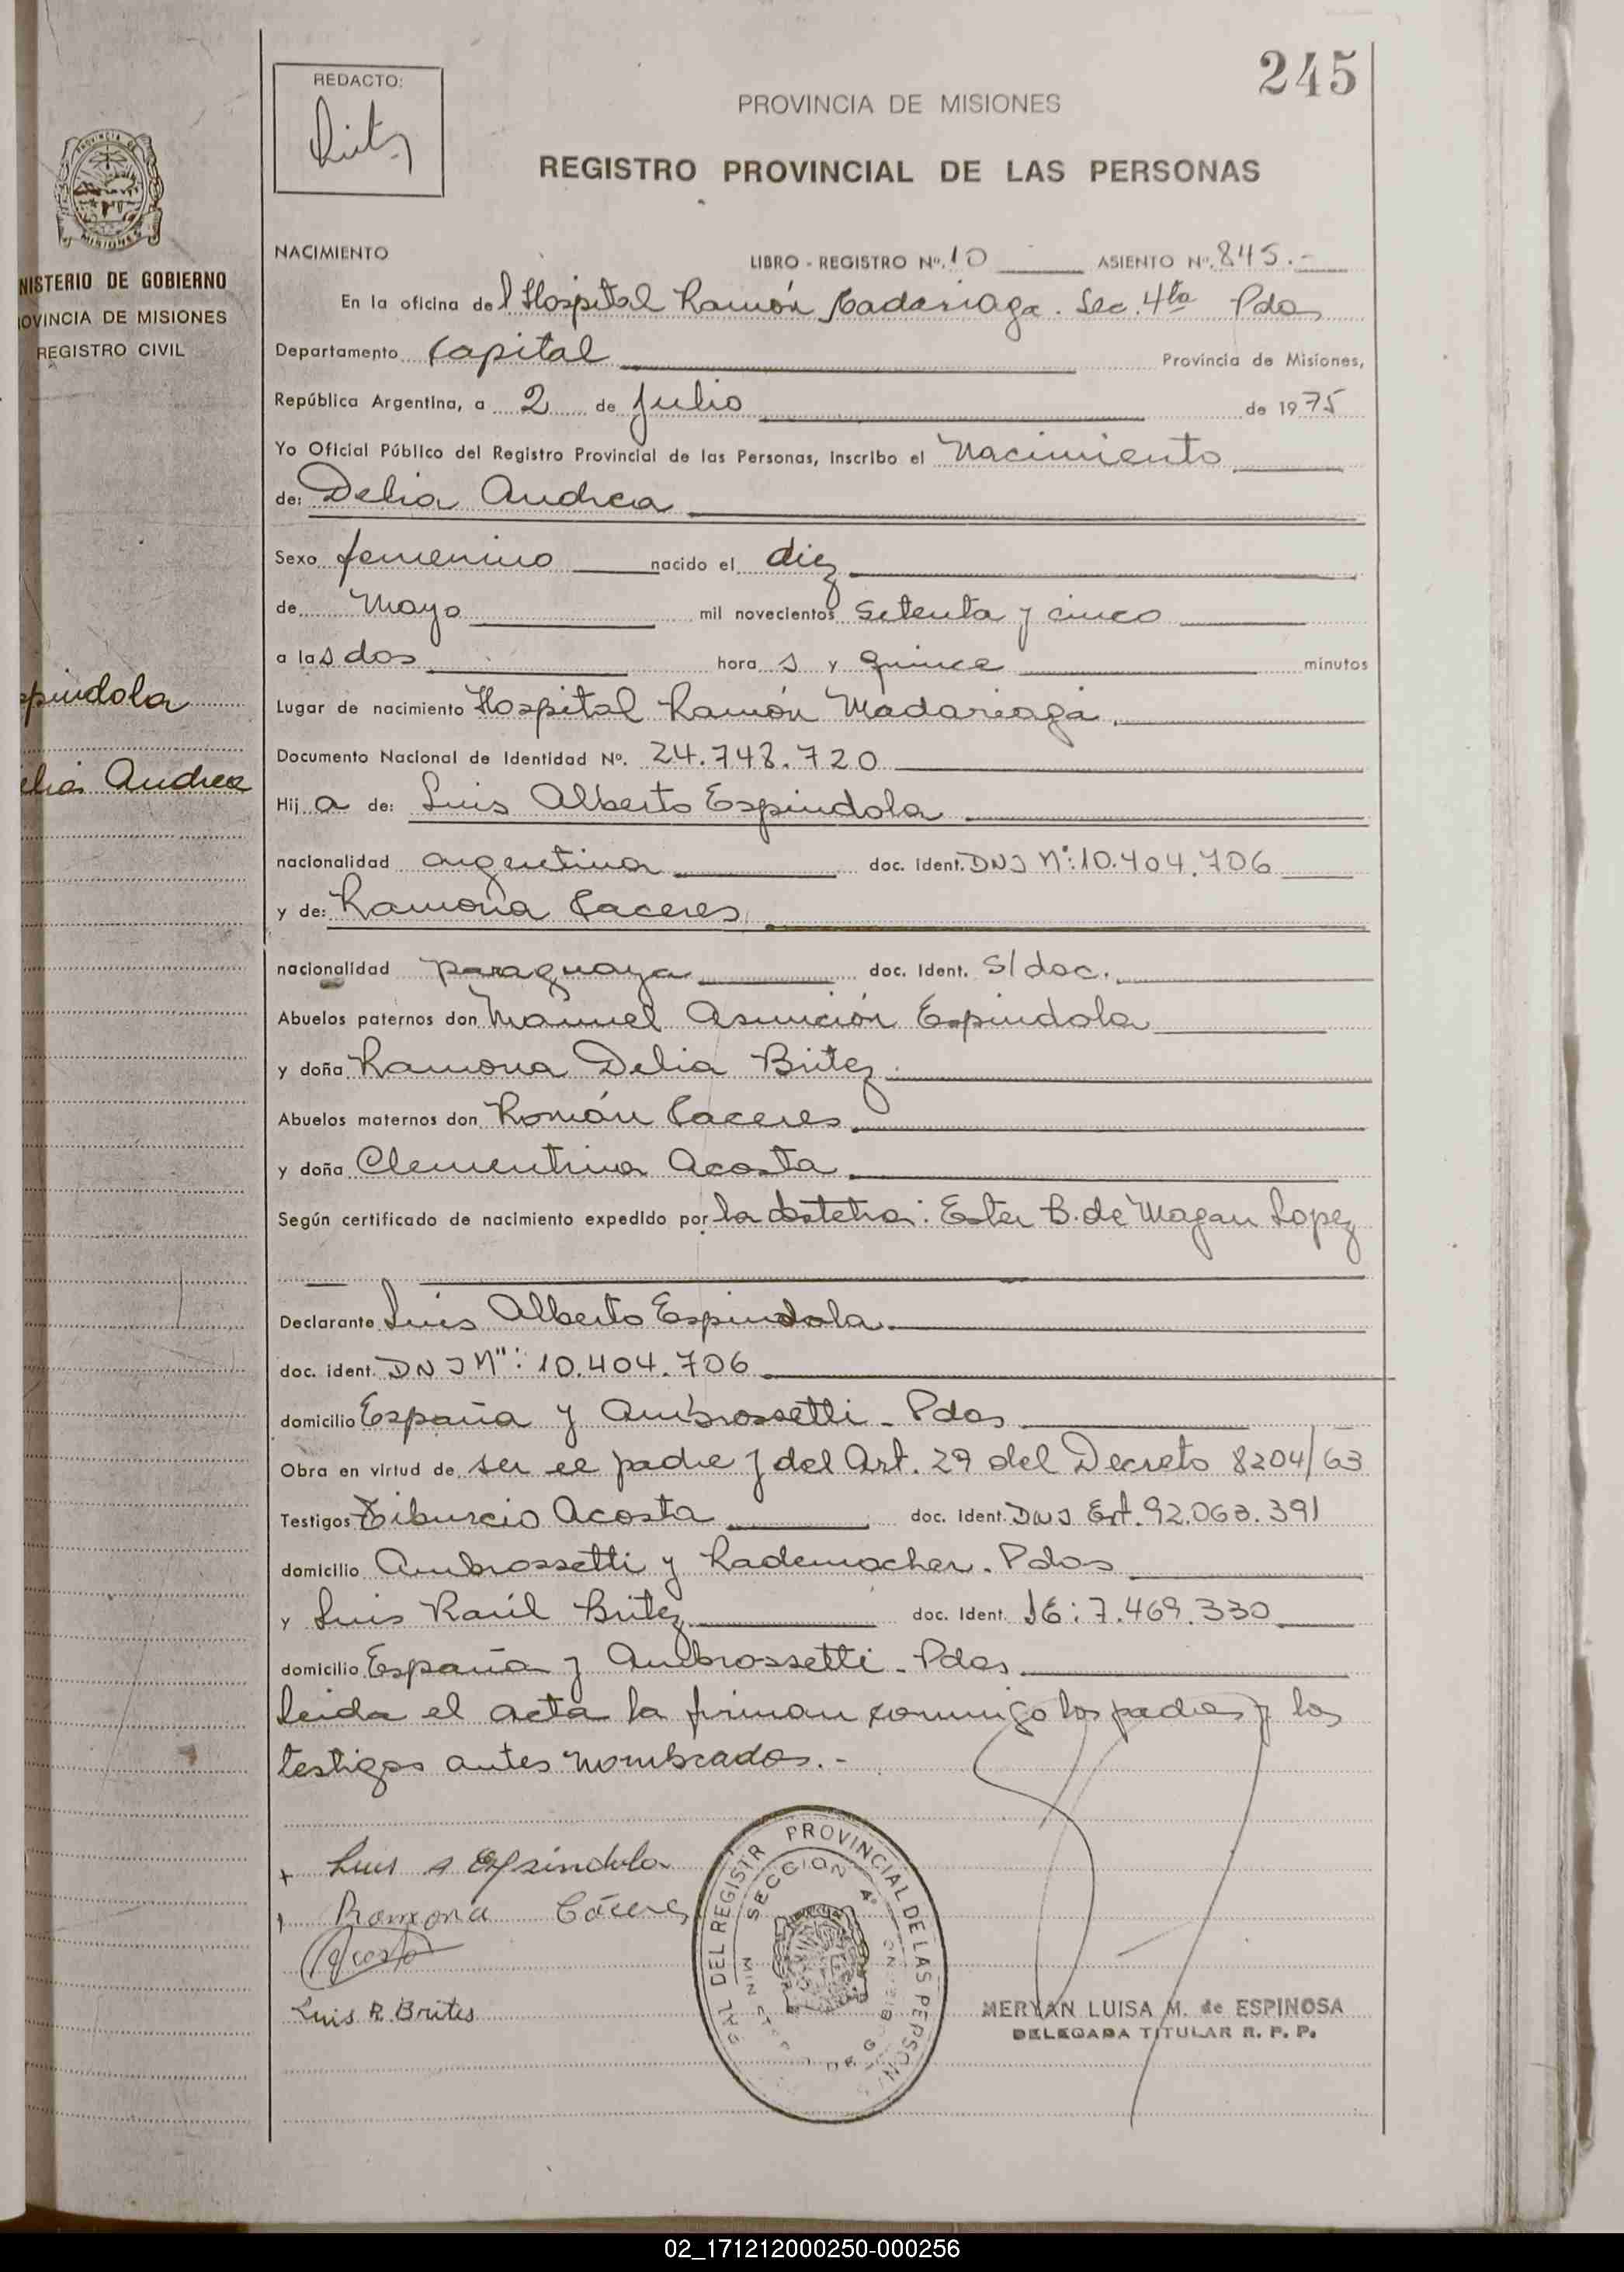 245
REDACTO:
PROVINCIA DE MISIONES
REGISTRO PROVINCIAL DE LAS PERSONAS
PROVINCIA DE
MISIONES
NISTERIO DE GOBIERNO
OVINCIA DE MISIONES
REGISTRO CIVIL
NACIMIENTO LIBRO - REGISTRO Nº. 10 ASIENTO Nº. 845.-
En la oficina del Hospital Ramón Madariaga. Sec. 4ta Pdas
Departamento Capital Provincia de Misiones,
República Argentina, a 2 de Julio de 1975
Yo Oficial Público del Registro Provincial de las Personas, inscribo el Nacimiento
de: Delia Andrea
Sexo femenino nacido el diez
de Mayo mil novecientos setenta y cinco
a las dos hora s y quince minutos
spindola
Lugar de nacimiento Hospital Ramón Madariaga
Documento Nacional de Identidad Nº. 24.748.720
elia Andrea
Hij a de: Luis Alberto Espindola
nacionalidad argentina doc. ident. DNI Nº: 10.404.706
y de: Ramona Caceres
nacionalidad paraguaya doc. ident. s/doc.
Abuelos paternos don Manuel Asunción Espindola
y doña Ramona Delia Britez
Abuelos maternos don Román Caceres
y doña Clementina Acosta
Según certificado de nacimiento expedido por la obstetra: Ester B. de Magan Lopez
Declarante Luis Alberto Espindola
doc. ident. DNI Nº: 10.404.706
domicilio España y Ambrossetti - Pdas
Obra en virtud de ser el padre y del Art. 29 del Decreto 8204/63
Testigos Tiburcio Acosta doc. ident. DNI Ext. 92.063.391
domicilio Ambrossetti y Rademacher. Pdas
y Luis Raúl Britez doc. ident. 7.469.330
domicilio España y Ambrossetti - Pdas
Leida el acta la firman conmigo los padres y los
testigos antes nombrados.-
Luis A Espindola
Ramona Cáceres
Acosta
Luis R. Brites
DEL REGISTR PROVINCIAL DE LAS PERSONAS
SECCION 4ª
MERYAN LUISA M. de ESPINOSA
DELEGADA TITULAR R. P. P.
02_171212000250-000256